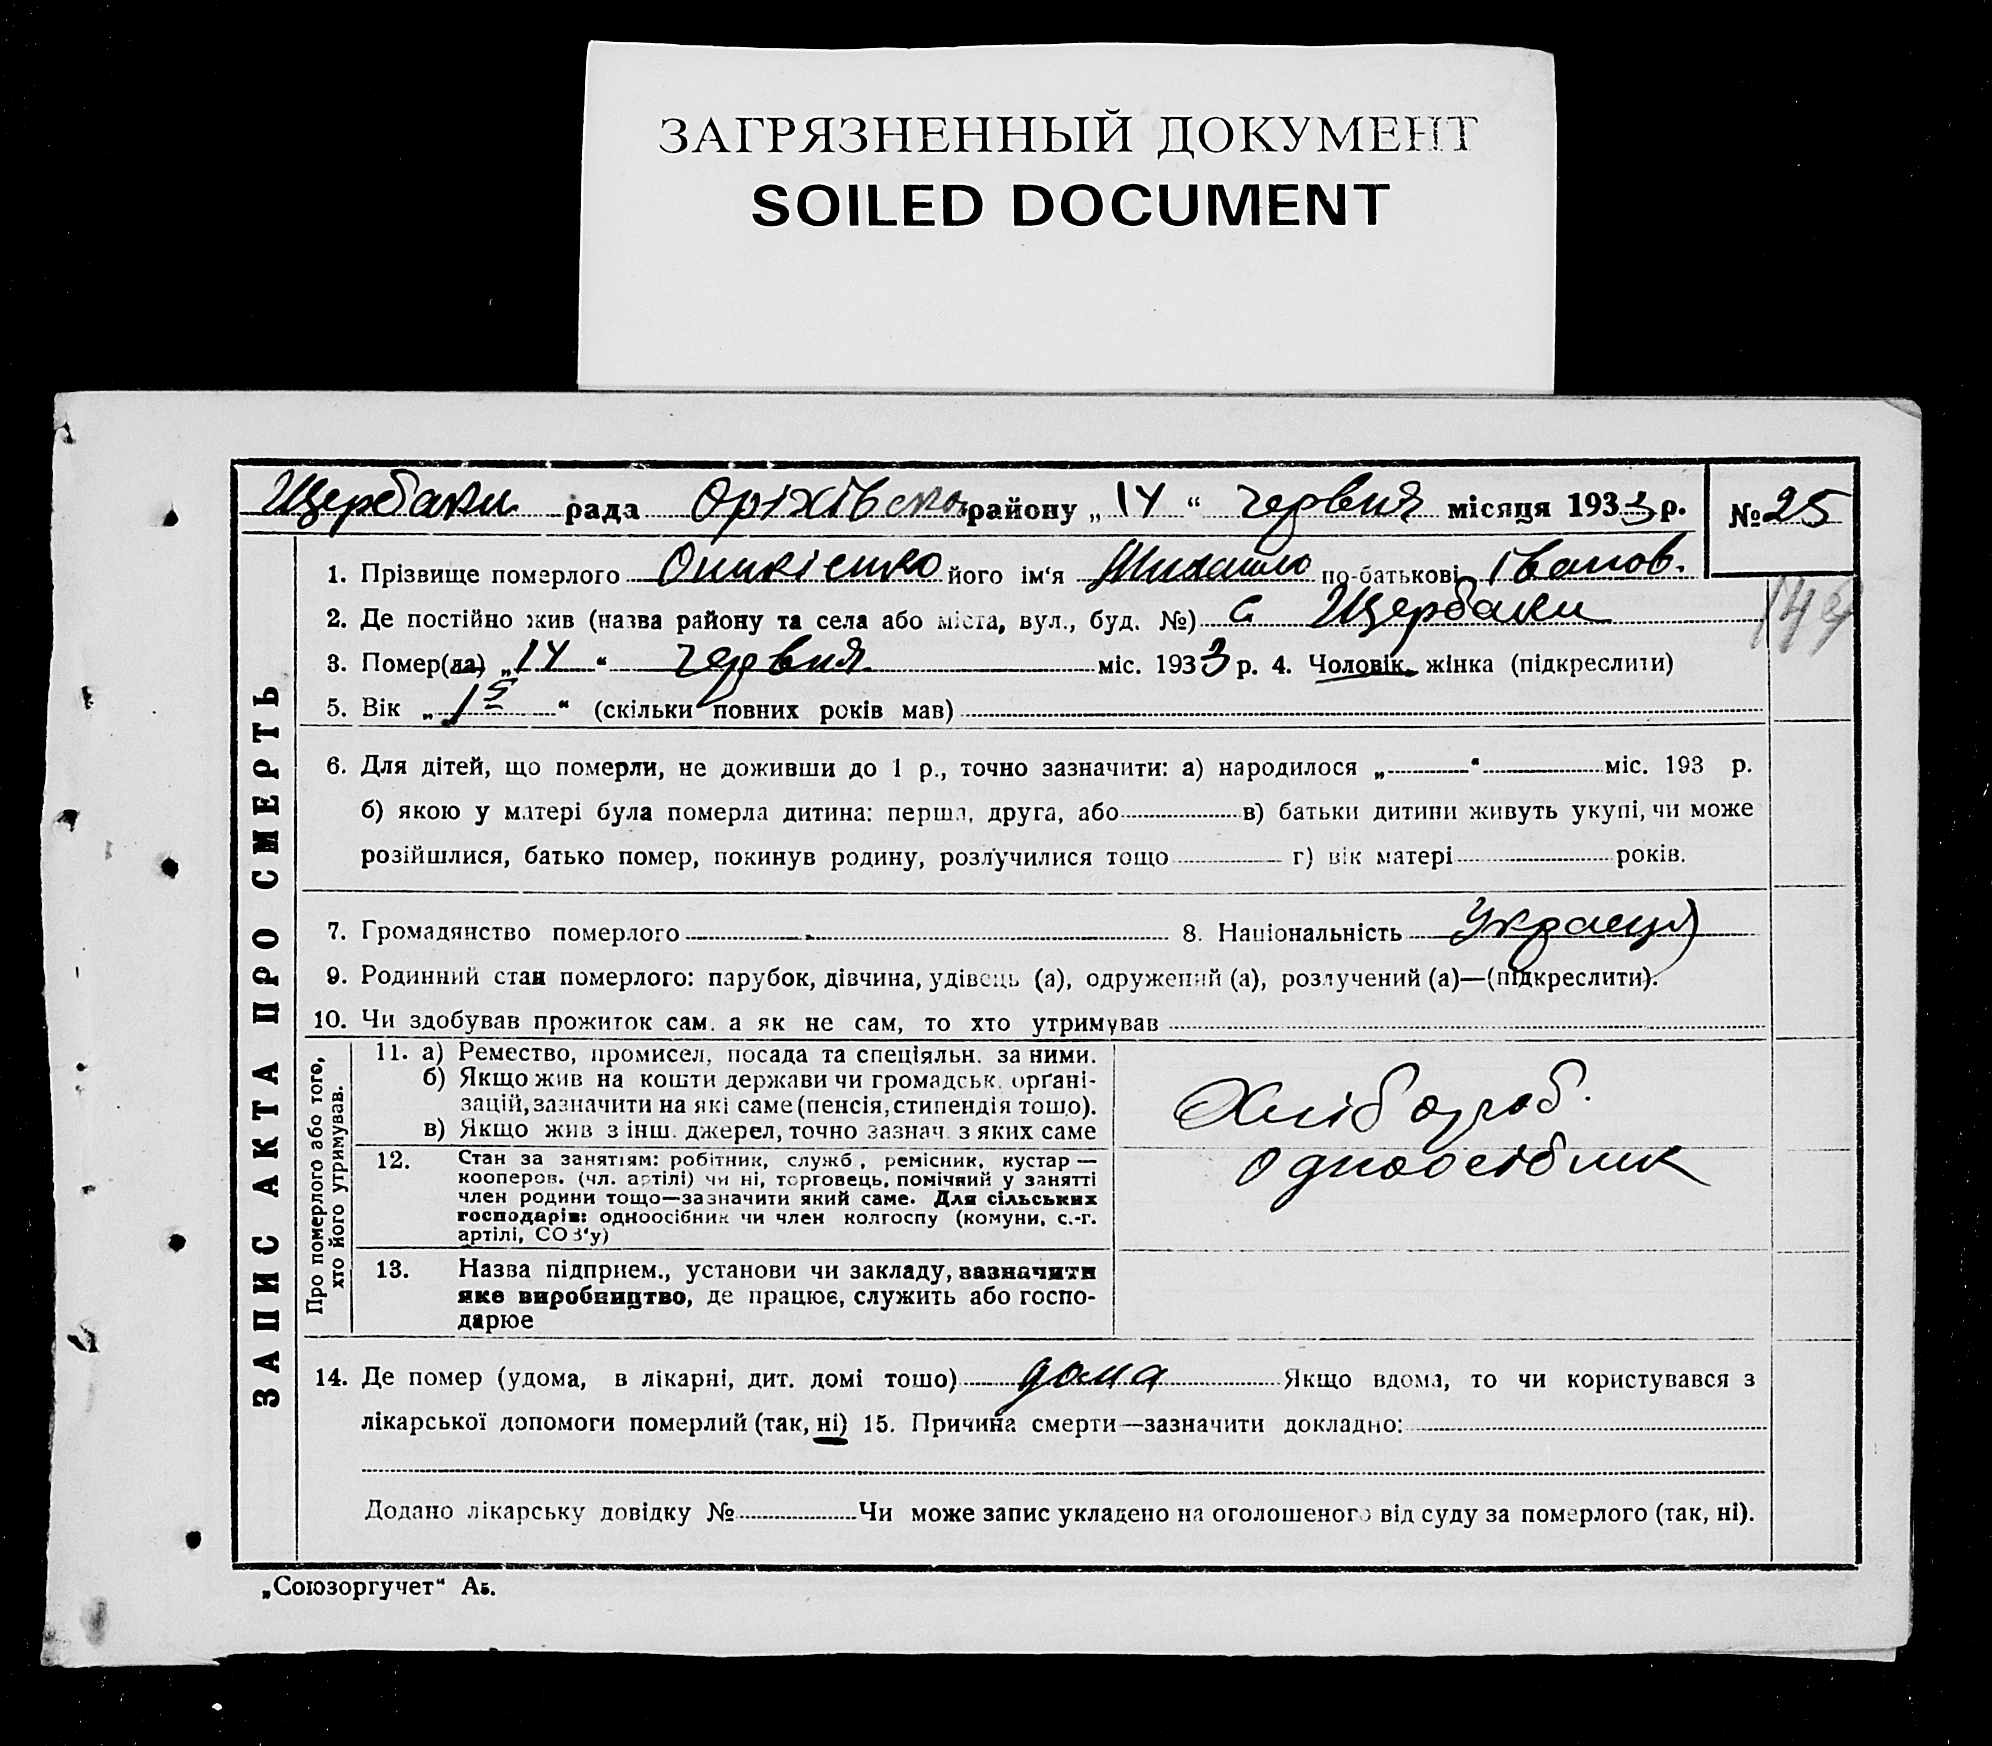 ЗАГРЯЗНЕННЫЙ ДОКУМЕНТ
SOILED DOCUMENT
Щербаки рада Оріхівсько району „14“ червня місяця 1933 р. № 25
1. Прізвище померлого його ім‘я Михайло по-батькові Іванов.
2. Де постійно жив (назва району та села або міста, вул., буд. №) с Щербаки
3. Помер(ла) „14“ червня міс. 1933 р. 4. Чоловік, жінка (підкреслити)
5. Вік „15“ (скільки повних років мав)
6. Для дітей, що померли, не доживши до 1 р., точно зазначити: а) народилося „ “ міс. 193 р.
б) якою у матері була померла дитина: перша, друга, або в) батьки дитини живуть укупі, чи може
розійшлися, батько помер, покинув родину, розлучилися тощо г) вік матері років.
7. Громадянство померлого 8. Національність Украець
9. Родинний стан померлого: парубок, дівчина, удівець (а), одружений (а), розлучений (а)—(підкреслити).
10. Чи здобував прожиток сам, а як не сам, то хто утримував
ЗАПИС АКТА ПРО СМЕРТЬ
Про померлого або того,
хто його утримував.
11. а) Ремество, промисел, посада та спеціяльн. за ними.
б) Якщо жив на кошти держави чи громадськ. орґані-
зацій, зазначити на які саме (пенсія, стипендія тощо).
в) Якщо жив з інш. джерел, точно зазнач. з яких саме
Хлібороб.
12. Стан за занятіям: робітник, служб., ремісник, кустар—
кооперов. (чл. артілі) чи ні, торговець, помічний у занятті
член родини тощо—зазначити який саме. Для сільських
господарів: одноосібник чи член колгоспу (комуни, с.-г.
артілі, СОЗ‘у)
одноосібник
13. Назва підприєм., установи чи закладу, зазначити
яке виробництво, де працює, служить або госпо-
дарює
14. Де помер (удома, в лікарні, дит. домі тощо) дома Якщо вдома, то чи користувався з
лікарської допомоги померлий (так, ні) 15. Причина смерти—зазначити докладно:
Додано лікарську довідку № Чи може запис укладено на оголошеного від суду за померлого (так, ні).
„Союзоргучет“ Аб.